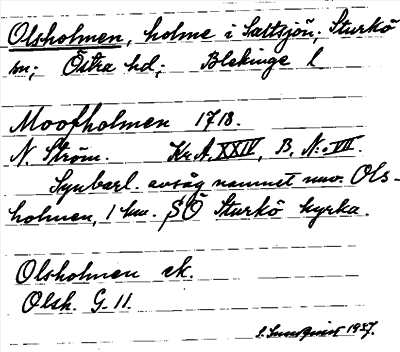 Olsholmen, holme i Saltsjön. Sturkö
sn; Östra hd; Blekinge l
Moofholmen 1718.
N. Ström. Kr.A. XXIV, B, No: VII.
Synbarl. avsåg namnet nuv. Ols-
holmen, 1 km. SÖ Sturkö kyrka.
Olsholmen ek.
Olsh. G. 11.
S. Sundqvist 1937.